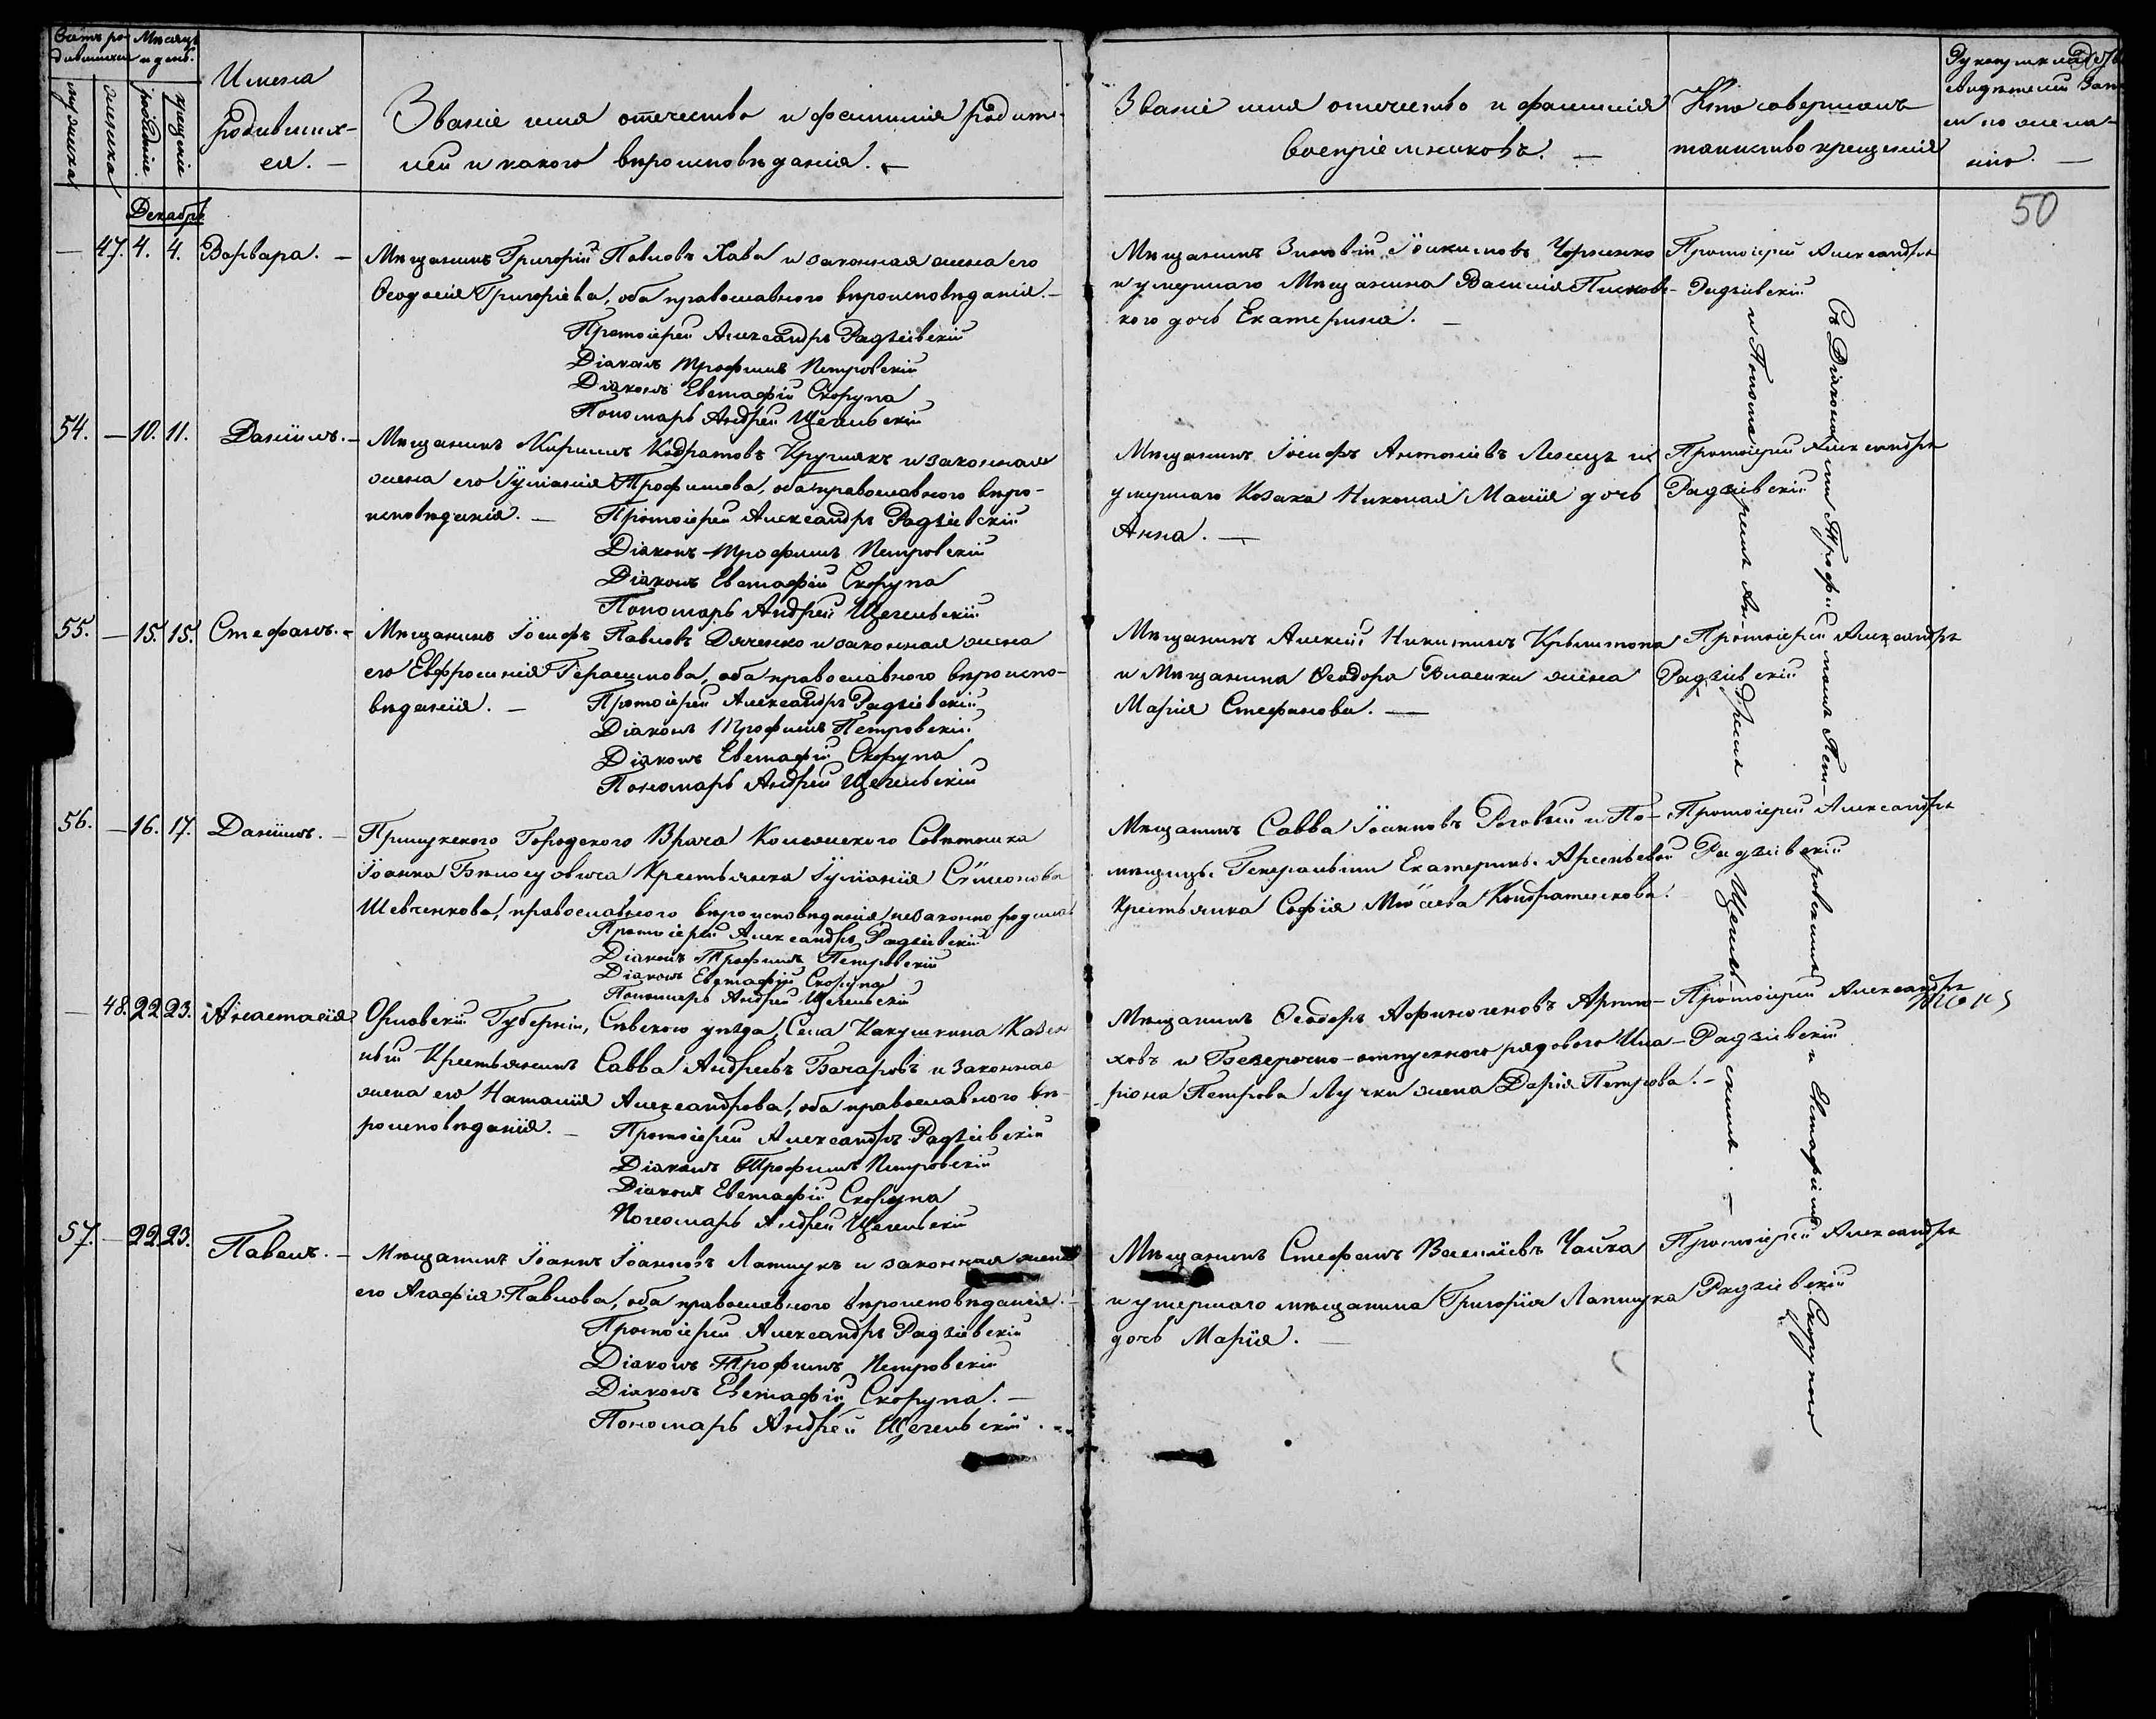 Счетъ ро-
дившихся
Мѣсяцъ
и день.
мужеска
женска
рожденіе
крещеніе
Имена
родивших-
ся. —
Званіе имя отечество и фамилія родите-
лей и какого вѣроисповѣданія. —
Званіе имя отечество и фамилія
воспріемниковъ. —
Кто совершалъ
таинство крещенія
Рукоприклад
свидѣтелей запи
си по жела-
нію. —
50
Декабрь
— 47. 4. 4. Варвара. —
Мѣщанинъ Григорій Павловъ Хава и законная жена его
Ѳеодосія Григоріева, оба православнаго вѣроисповѣданія. —
Протоіерей Александръ Радзіевскій
Діаконъ Трофимъ Петровскій
Діаконъ Евстафій Скорупа
Пономарь Андрей Щегельскій
Мѣщанинъ Зиновій Іоакимовъ Черненко
и умершаго Мѣщанина Василія Писков-
кого дочь Екатерина. —
Протоіерей Александръ
Радзіевскій
54. — 10. 11. Даніилъ. —
Мѣщанинъ Кириллъ Кодратовъ Кругликъ и законная
жена его Іуліанія Трофимова, оба православного вѣро-
исповѣданія. — Протоіерей Александръ Радзіевскій
Діаконъ Трофимъ Петровскій
Діаконъ Евстафій Скорупа
Пономарь Андрей Щегельскій
Мѣщанинъ Іосифъ Антоніевъ и
умершаго Козака Николая дочь
Анна. —
Протоіерей Александръ
Радзіевскій
55. — 15. 15. Стефанъ. —
Мѣщанинъ Іосифъ Павловъ Дяченко и законная жена
его Евфросинія Герасимова, оба православного вѣроиспо-
вѣданія. — Протоіерей Александръ Радзіевскій
Діаконъ Трофимъ Петровскій
Діаконъ Евстафій Скорупа
Пономарь Андрей Щегельскій
Мѣщанинъ Алексій Никитинъ
и Мѣщанина Ѳеодора Власики жена
Марія Стефанова. —
Протоіерей Александръ
Радзіевскій
56. — 16. 17. Даніилъ. —
Прилукского Городского Врача Колежского Совѣтника
Іоанна Бѣлоусовича Крестьянка Іуліанія Сѵмеонова
Шевченкова, православного вѣроисповѣданія, незаконно родила
Протоіерей Александръ Радзіевскій
Діаконъ Трофимъ Петровскій
Діаконъ Евстафій Скорупа
Пономарь Андрей Щегельскій
Мѣщанинъ Савва Іоанновъ Роговый и По-
мѣщицы Генеральши Екатерины Арсеньевой
Крестьянка Софія Моісеева Кондратенкова.
Протоіерей Александръ
Радзіевскій
— 48. 22. 23. Анастасія
Орловскій Губерніи, Сѣвского уѣзда, Села Казен
ный Крестьянинъ Савва Андреевъ Бачаровъ и законная
жена его Наталія Александрова, оба православного вѣ-
роисповѣданія. — Протоіерей Александръ Радзіевскій
Діаконъ Трофимъ Петровскій
Діаконъ Евстафій Скорупа
Пономарь Андрей Щегельскій
Мѣщанинъ Ѳеодоръ Аѳиногеновъ Артю-
ховъ и Безсрочно-отпускного рядового Ила-
ріона Петрова Лучки жена Дарія Петрова. —
Протоіерей Александръ
Радзіевскій
57. — 22. 23. Павелъ. —
Мѣщанинъ Іоаннъ Іоанновъ Лапшукъ и законная жена
его Агафія Павлова, оба православного вѣроисповѣданія. —
Протоіерей Александръ Радзіевскій
Діаконъ Трофимъ Петровскій
Діаконъ Евстафій Скорупа. —
Пономарь Андрей Щегельскій
Мѣщанинъ Стефанъ Василіевъ Чайка
и умершаго мѣщанина Григорія Лапшука
дочь Марія. —
Протоіерей Александръ
Радзіевскій
Съ Діаконами Трофимомъ Пет-
ровскимъ и Евстафіемъ Скорупою
и Пономаремъ Ан-
дреемъ Щегельскимъ. —